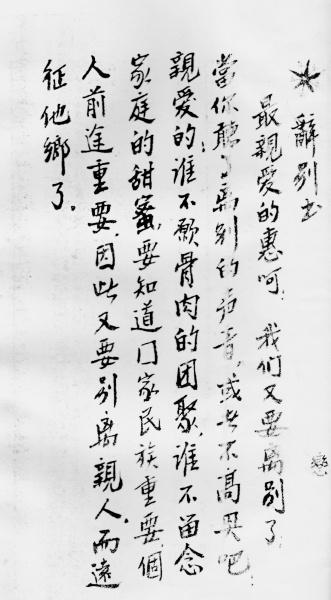 ★ 辭别书
最親爱的惠呵：我们又要离别了，
當你聽了离别的声音，或者不高兴吧！
親爱的：谁不願骨肉的团聚，谁不留念
家庭的甜蜜，要知道囗家民族重要，個
人前途重要，因此又要别离親人，而遠
征他鄉了。
戀